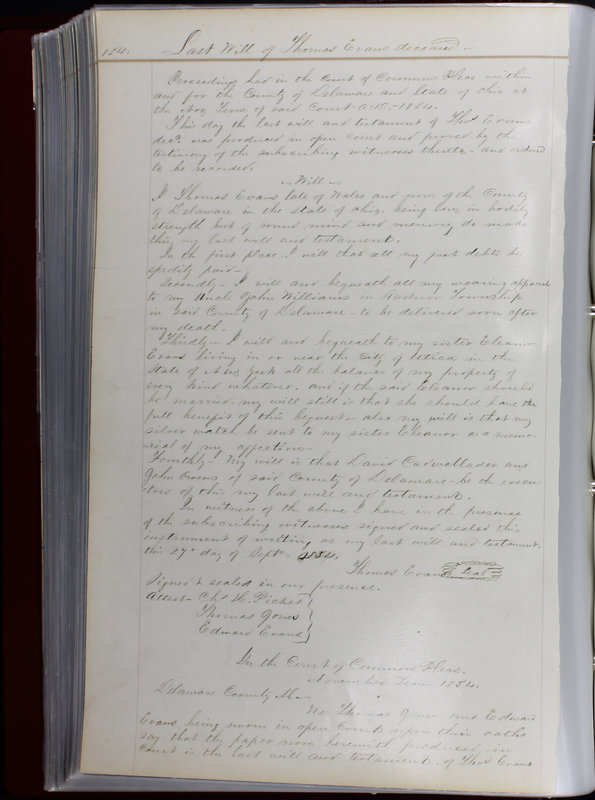 134. Last Will of Thomas Evans deceased
Proceedings had in the Court of Common Pleas within
and for the County of Delaware and State of Ohio at
the Nov Term of said Court A.D. 1854.
This day the last will and testament of Thos Evans
decd. was produced in open court and proved by the
testimony of the subscribing witnesses thereto and ordered
to be recorded.
Will
I Thomas Evans late of Wales and now of the County
of Delaware in the state of Ohio, being low in bodily
strength but of sound mind and memory do make
this my last will and testament.
In the first place I will that all my just debts be
spedily paid
Secondly - I will and bequeath all my wearing apparel
to my Uncle John Williams in Township
in said County of Delaware - to be delivered soon after
my death.
Thirdly - I will and bequeath to my sister Eleanor
Evans living in or near the City of Utica in the
State of New York all the balance of my property of
every kind whatever. and if the said Eleanor should
be married my will still is that she should have the
full benefit of this bequest - also my will is that my
silver watch be sent to my sister Eleanor as a memo-
rial of my affection -
Fourthly - My will is that David Cadwallader and
John Owens of said County of Delaware - be the execu-
tors of this my last will and testament.
In witness of the above I have in the presence
of the subscribing witnesses signed and sealed this
instrument of writing as my last will and testament.
this 27th day of Sept. 1854.
Thomas Evans Seal
Signed & sealed in our presence.
Attest - Chs H. Picket
Thomas Jones
Edward Evans
In the Court of Common Pleas.
November Term 1854.
Delaware County Ss.
We Thomas Jones and Edward
Evans being sworn in open Court upon their oaths
say - that the paper now herewith produced in
Court is the last will and testament of Thos Evans